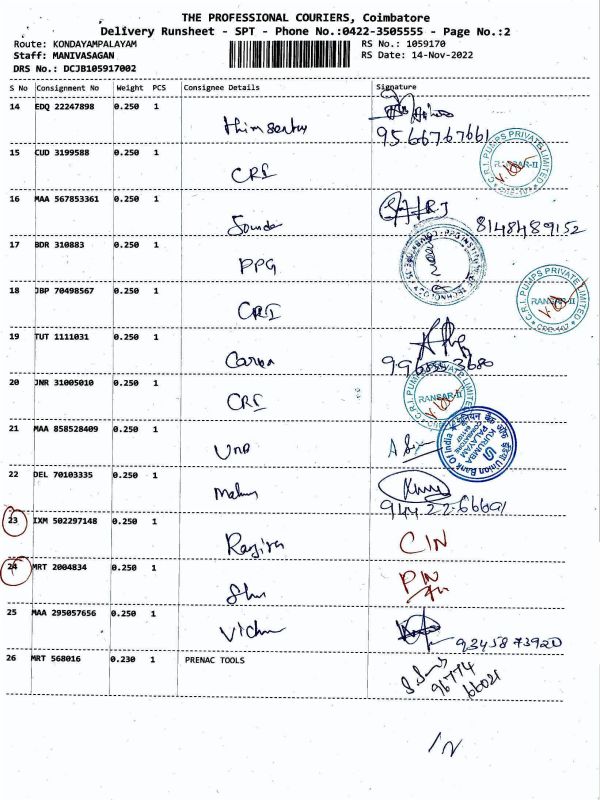 THE PROFESSIONAL COURIERS, Coimbatore
Delivery Runsheet - SPT - Phone No.:0422-3505555 - Page No.:2
Route: KONDAYAMPALAYAM RS No.: 1059170
Staff: MANIVASAGAN RS Date: 14-Nov-2022
DRS No.: DCJB105917002
S No Consignment No Weight PCS Consignee Details Signature
14 EDQ 22247898 0.250 1
9566767661
15 CUD 3199588 0.250 1 CRI
C.R.I. PUMPS PRIVATE LIMITED
RANGAR-II
16 MAA 567853361 0.250 1
8148489152
17 BDR 310883 0.250 1 PPG
18 JBP 70498567 0.250 1 CRI
C.R.I. PUMPS PRIVATE LIMITED
RANGAR-II
19 TUT 1111031 0.250 1
20 JNR 31005010 0.250 1 CRI
C.R.I. PUMPS PRIVATE LIMITED
RANGAR-II
21 MAA 858528409 0.250 1
यूनियन बैंक ऑफ इंडिया Union Bank Of India
KURUMBA
PALAYAM
COIMBATORE
22 DEL 70103335 0.250 1
23 IXM 502297148 0.250 1 CIN
24 MRT 2004834 0.250 1 PIN
25 MAA 295057656 0.250 1
9345873920
26 MRT 568016 0.230 1 PRENAC TOOLS
96774
66021